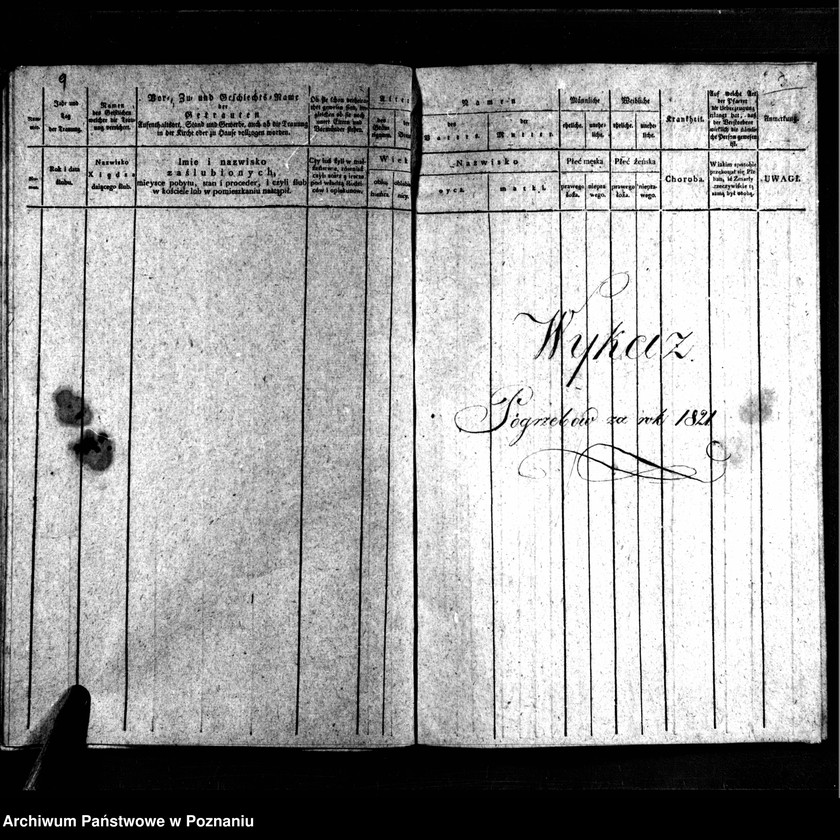 9
Jahr und Tag der Trauung.
Namen des Geistlichen welcher die Trauung verrichtet.
Vor-, Zu- und Geschlechts-Name
der
Getrauten
Aufenthaltsort, Stand und Gewerbe, auch ob die Trauung
in der Kirche oder zu Hause vollzogen worden.
Alter
Rok i data ślubu.
Nazwisko
Xiędza
daiącego ślub.
Imie i nazwisko
zaślubionych,
mieysce pobytu, stan i proceder, i czyli ślub
w kościele lub w pomieszkaniu nastąpił.
Wiek
Namen
des Vaters.
der Mutter.
Männliche
eheliche.
unehe-
liche.
Weibliche
eheliche.
unehe-
liche.
Krankheit.
Auf welche Art
der Pfarrer
die Ueberzeugung
erlangt hat, daß
der Verstorbene
wirklich die nämli-
che Person gewesen
ist.
Anmerkung.
Nazwisko
oyca
matki.
Płeć męska
prawego
łoża.
niepra-
wego.
Płeć żeńska
prawego
łoża.
niepra-
wego.
Choroba.
W iakim sposobie
przekonał się Ple-
ban, iż Zmarły
rzeczywiście tą
samą był osobą.
UWAGI.
Wykaz
Pogrzebów za rok 1821
Archiwum Państwowe w Poznaniu